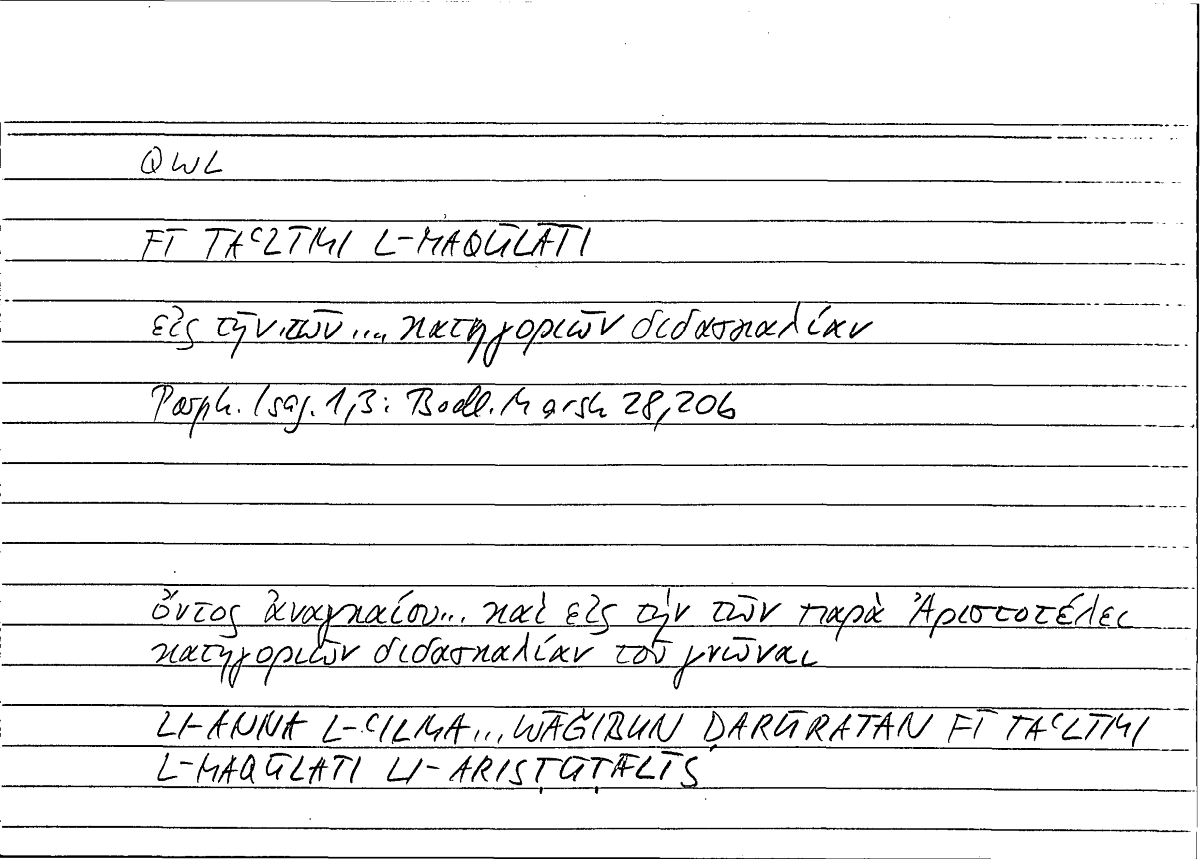 QWL
FĪ TAʿLĪMI L-MAQŪLĀTI
εἰς τὴν τῶν ... κατηγοριῶν διδασκαλίαν
Porph. Isag. 1,3: Bodl. Marsh 28,20b
ὄντος ἀναγκαίου... καὶ εἰς τὴν τῶν παρὰ Ἀριστοτέλει
κατηγοριῶν διδασκαλίαν τοῦ γνῶναι
LI-ANNA L-ʿILMA... WĀǦIBUN ḌARŪRATAN FĪ TAʿLĪMI
L-MAQŪLATI LI-ARISṬŪṬĀLĪS